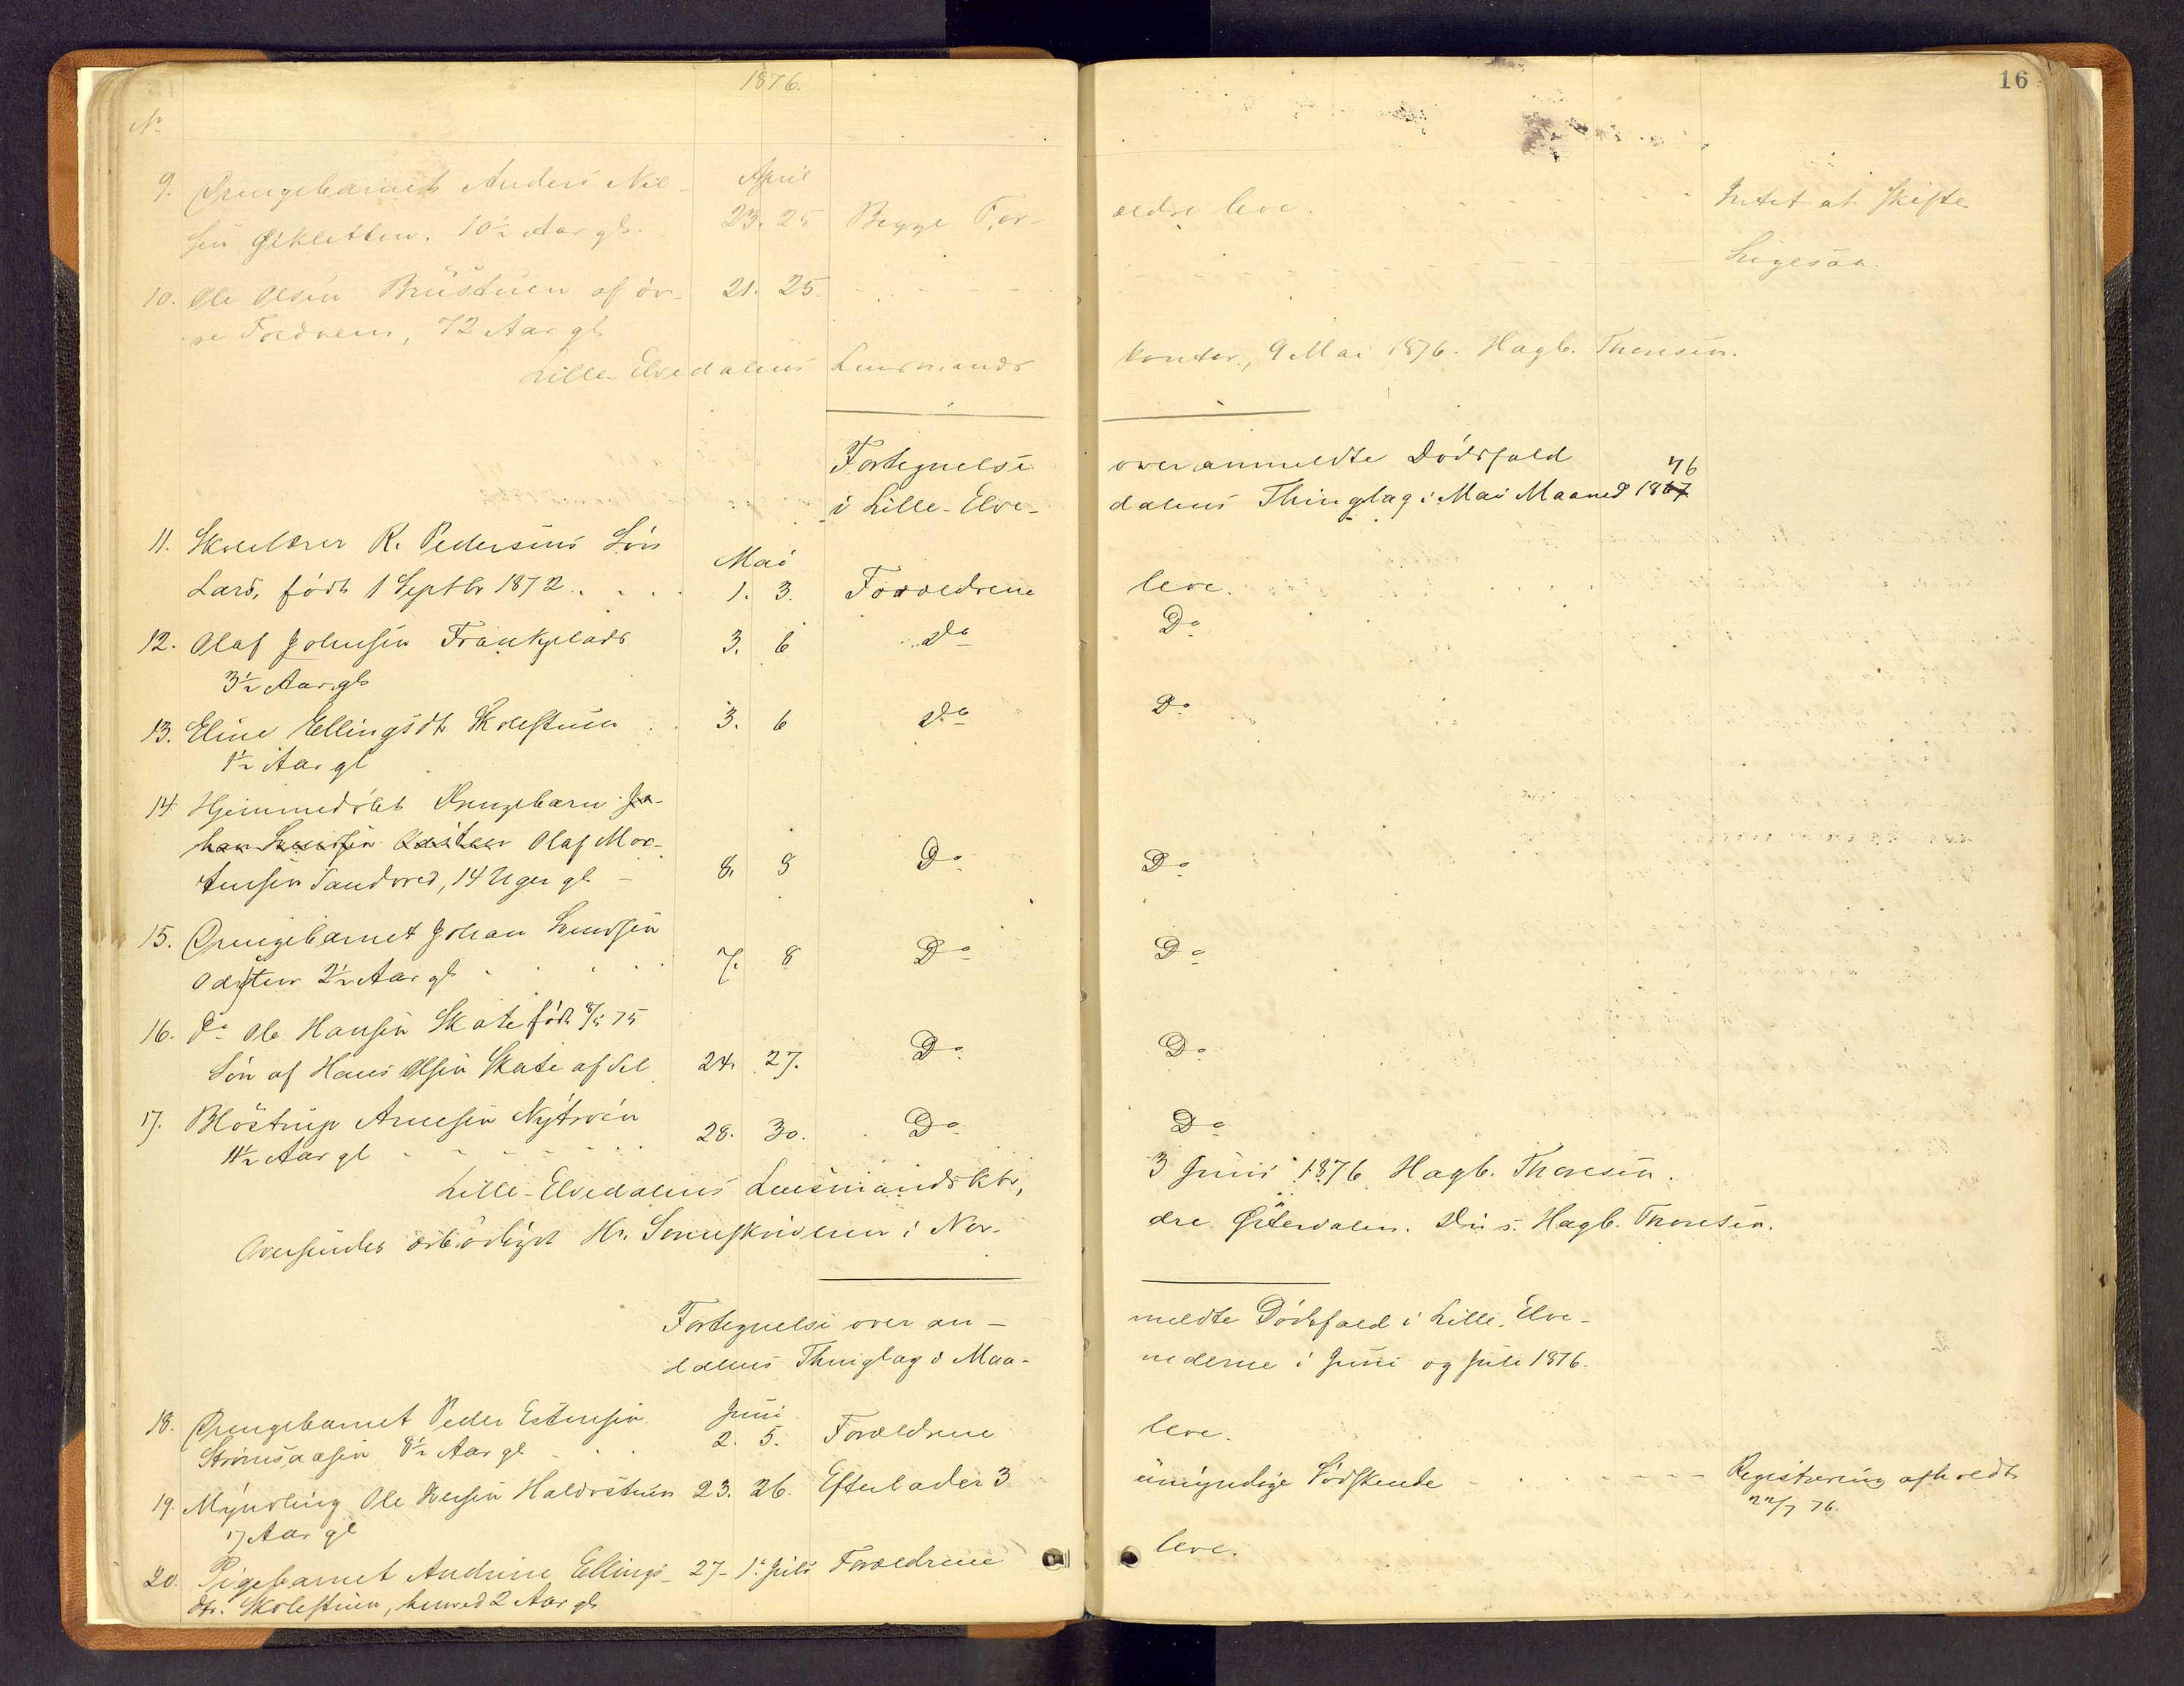 1876.
16
No
9. Drengebarnet Anders Nil- April
sen Gikletten. 10½ Aar gl. 23. 25 Begge For- ældre leve. Intet at skifte
10. Ole Olsen Brustuen af öv- 21. 25. Ligesaa.
re Foldalen, 72 Aar gl
Lille-Elvedalens Lensmands kontor, 9 Mai 1876. Hagb. Thoresen.
Fortegnelse over anmeldte Dödsfald
i Lille-Elve- dalens Thinglag i Mai Maaned 1876
11. Skolelærer R. Pedersens Sön Mai
Lars, födt 1 Septbr 1872 1. 3. Forældrene leve.
12. Olaf Johnsen Frankplads 3. 6 Do Do
3½ Aar gl
13. Eline Ellingsdt Skolestuen 3. 6 Do Do
1½ Aar gl
14. Hjemmedöbt Drengebarn Jo-
han Svendsen Odösteen Olaf Mor-
tensen Sandvoed, 14 Uger gl 8. 8 Do Do
15. Drengebarnet Johan Svendsen
Odesteen 2½ Aar gl 7. 8 Do Do
16. Do Ole Hansen Skate födt 8/5 75
Sön af Hans Olsen Skate af Sel 24. 27. Do Do
17. Blöstrup Arnesen Nytröen
11½ Aar gl 28. 30. Do Do
Lille-Elvedalens Lensmandsktr, 3 Juni 1876 Hagb. Thoresen.
Oversendes ærbödigst Hr. Sorenskriveren i Nor- dre Østerdalen. D. u. s. Hagb. Thoresen.
Fortegnelse over an- meldte Dödsfald i Lille-Elve-
dalens Thinglag i Maa- nederne i Juni og Juli 1876.
18. Drengebarnet Peder Estensen Juni
Strömsaasen 8½ Aar gl 2. 5. Forældrene leve.
19. Myndling Ole Iversen Haldostuen 23. 26. Efterlader 3 umyndige Södskende Registrering afholdt
17 Aar gl 22/7 76.
20. Pigebarnet Andrine Ellings- 27- 1. Juli Forældrene leve.
dtr. Skolestuen, henved 2 Aar gl